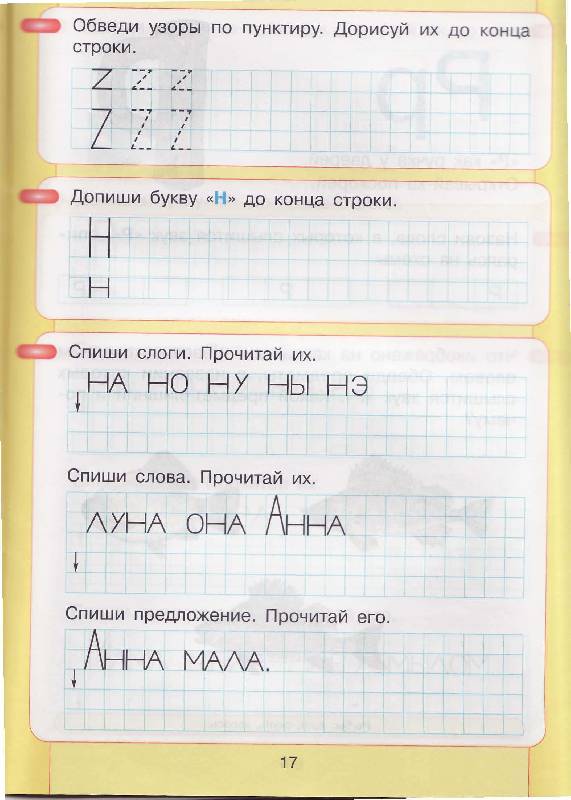 Обведи узоры по пунктиру. Дорисуй их до конца
строки.
Допиши букву «Н» до конца строки.
Н
н
Спиши слоги. Прочитай их.
на но ну ны нэ
Спиши слова. Прочитай их.
луна она Анна
Спиши предложение. Прочитай его.
Анна мала.
17